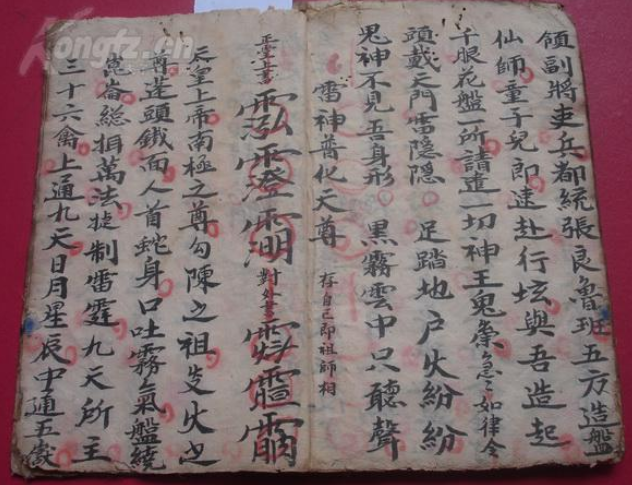 領副將吏兵都統張良魯班五方造盤
仙師童子兒即速赴行坛與吾造起
千眼花盤一所請進一切神王鬼祟急急如律令
頭戴天門雷隱隱 足踏地戶火紛紛
鬼神不見吾身形 黑霧雲中只聽聲
雷神普化天尊 存自己即祖師相
正
對外書
天皇上帝南極之尊勾陳之祖炎火之
尊蓬頭鐵面人首蛇身口吐霧氣盤繞
崑崙総捐萬法 制雷霆九天所主
三十六禽上通九天日月星辰中通五嶽
Kongfz.cn